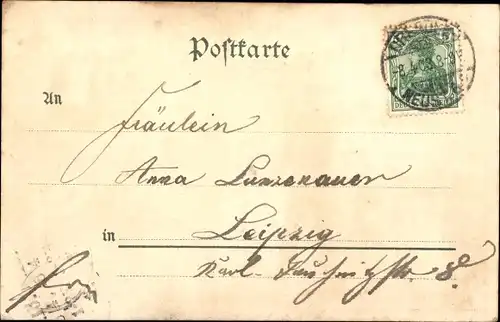 Postkarte
An
Fräulein
Anna Lunzenauer
in Leipzig
Karl-Tauchnitzstr. 8.